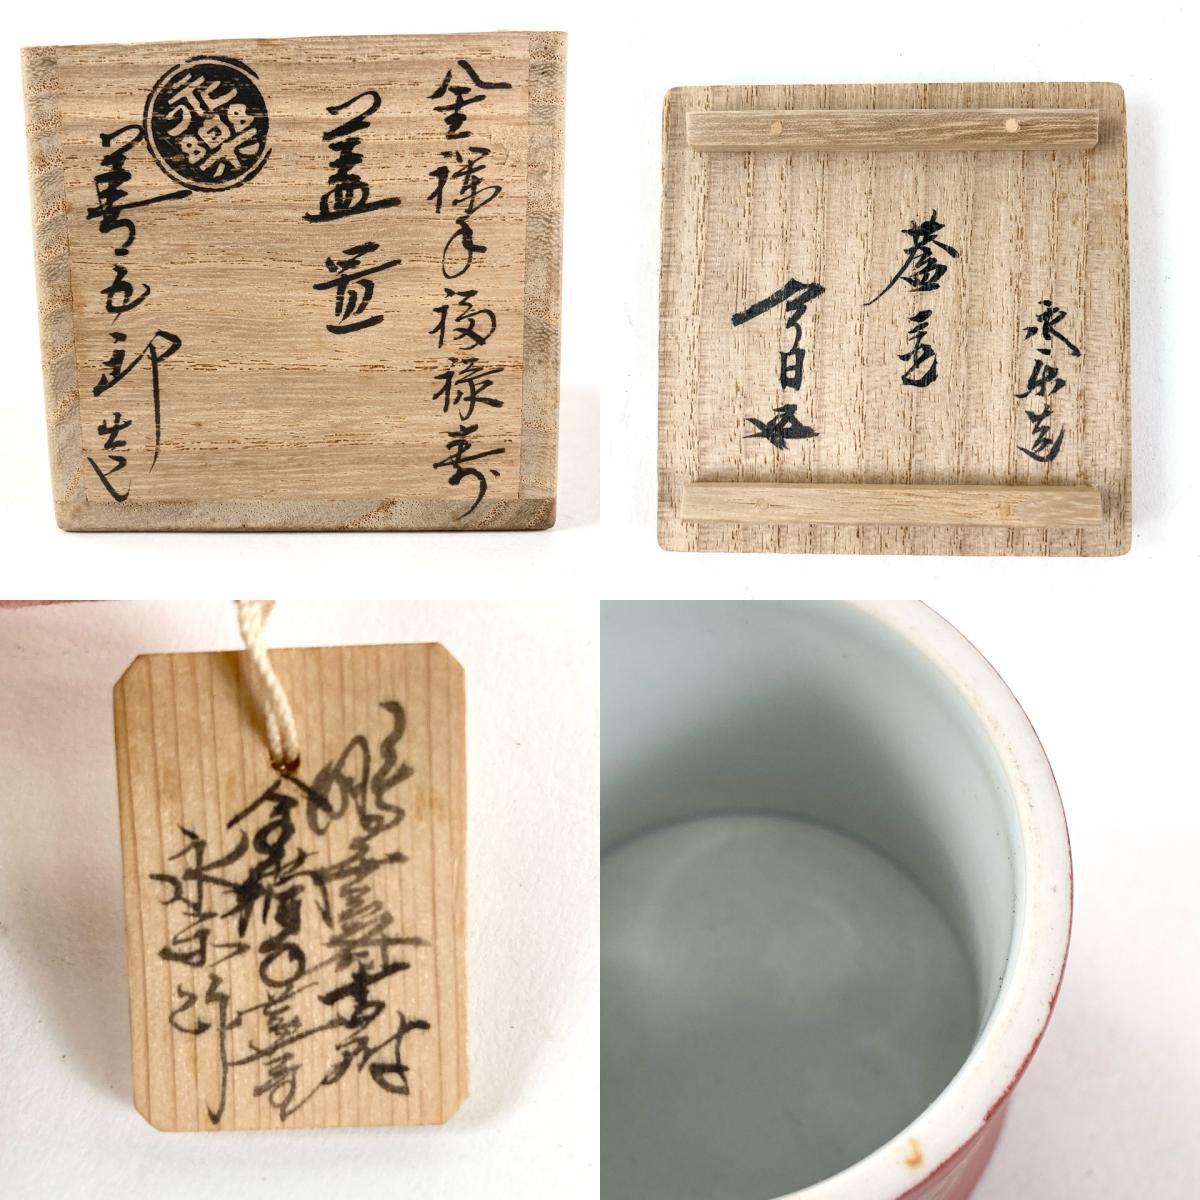 金襴手福禄寿
蓋置
善五郎造
永樂
永楽造
蓋置
今日
金襴手蓋置
永楽作